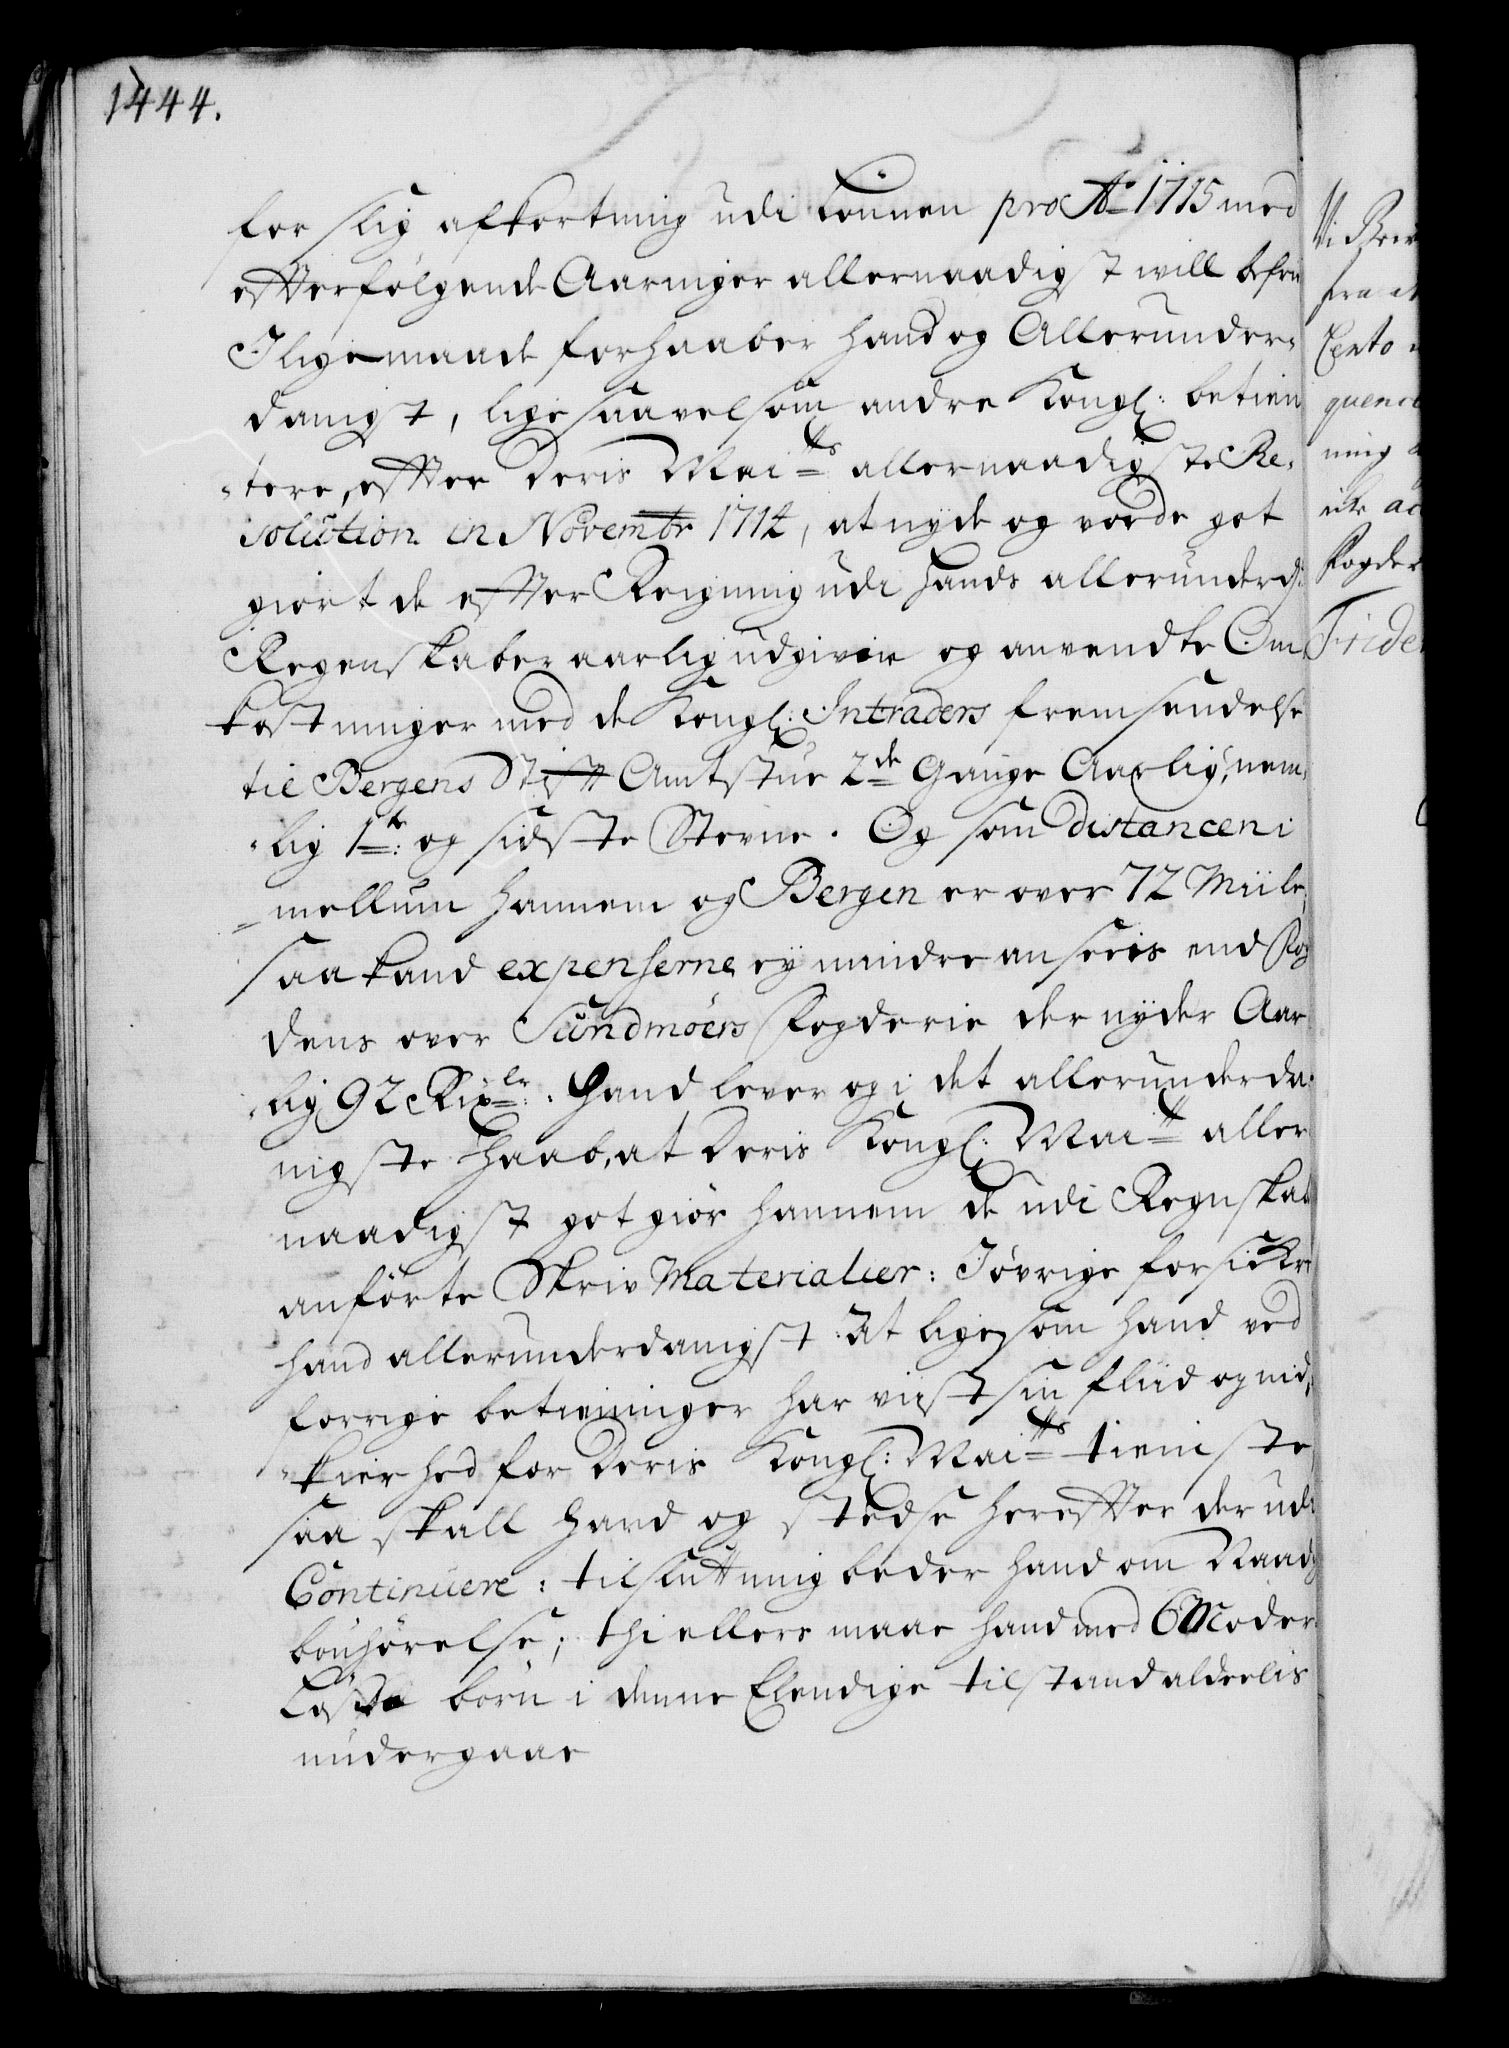 1444.
for slig afkortning udi Lønnen pro Ao 1715 med
efterfølgende Aaringer allernaadigst will befrie
Jligemaade forhaaber hand og Allerunder-
danigst, lige saavelsom andre Kongl: betien
-tere, efter Deris Maitts allernaadigste Re-
solution en Novembr 1714, at nyde og vorde got
giort de efter Reigning udi hands allerunderd:
Regenskaber aarlig udgivne og anvendte Om-
kostninger med de Kongl: Intraders fremsendelse
til Bergens Stifft Amtstue 2de Gange Aarlig, nem-
-lig 1te: og sidste Stevne. Og som distancen i
-mellum hannem og Bergen er over 72 Miile,
saa kand expenserne ey mindre ansees end Fog
dens over Sundmøers Fogderie der nyder Aar
-lig 92 Rixdlr: Hand lever og i det allerunderda-
nigste Haab, at Deris Kongl: Maitt aller
naadigst got giør hannem de udi Regnskab
anførte Skriv Materialier: Jøvrige forsickre
hand allerunderdanigst at ligesom hand ved
forrige betieninger har viist sin fliid og nid-
-kierhed for Deris Kongl: Maitts tieniste,
saa skall hand og stedse herefter der udi
Continuere: til slutning beder hand om Naadig
bønhørelse; thi ellers maae hand med 6 Moder-
Løse børn i denne Elendige tilstand aldeelis
undergaae
Vi Bev
fra at
Cento
quence
ning
ike ac
Fogder
Frider